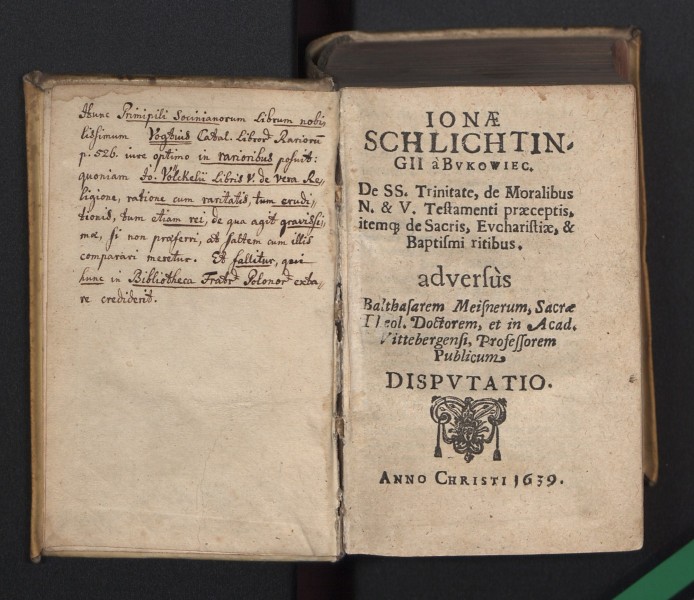 Hunc Principili Socinianorum Librum nobi-
lissimum Vogtius Catal. Libror. Rariorū
p. 526. iure optimo in rarioribus posuit:
quoniam Jo. Völckelii Libris V. de vera Re-
ligione, ratione cum raritatis, tum erudi-
tionis, tum etiam rei, de qua agit gravissi-
mæ, si non præferri, at saltem cum illis
comparari meretur. Et fallitur, qui
hunc in Bibliotheca Fratr. Polonor. exta-
re crediderit.
IONÆ
SCHLICHTIN-
GII à BVKOWIEC.
De SS. Trinitate, de Moralibus
N. & V. Testamenti præceptis,
itemq; de Sacris, Evcharistiæ, &
Baptismi ritibus.
adversùs
Balthasarem Meisnerum, Sacræ
Theol. Doctorem, et in Acad.
Vittebergensi, Professorem
Publicum.
DISPVTATIO.
ANNO CHRISTI 1639.